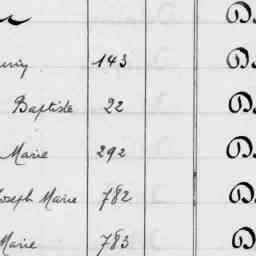 143 D
Baptiste 22 D
Marie 292 D
Joseph Marie 782 D
Marie 783 D